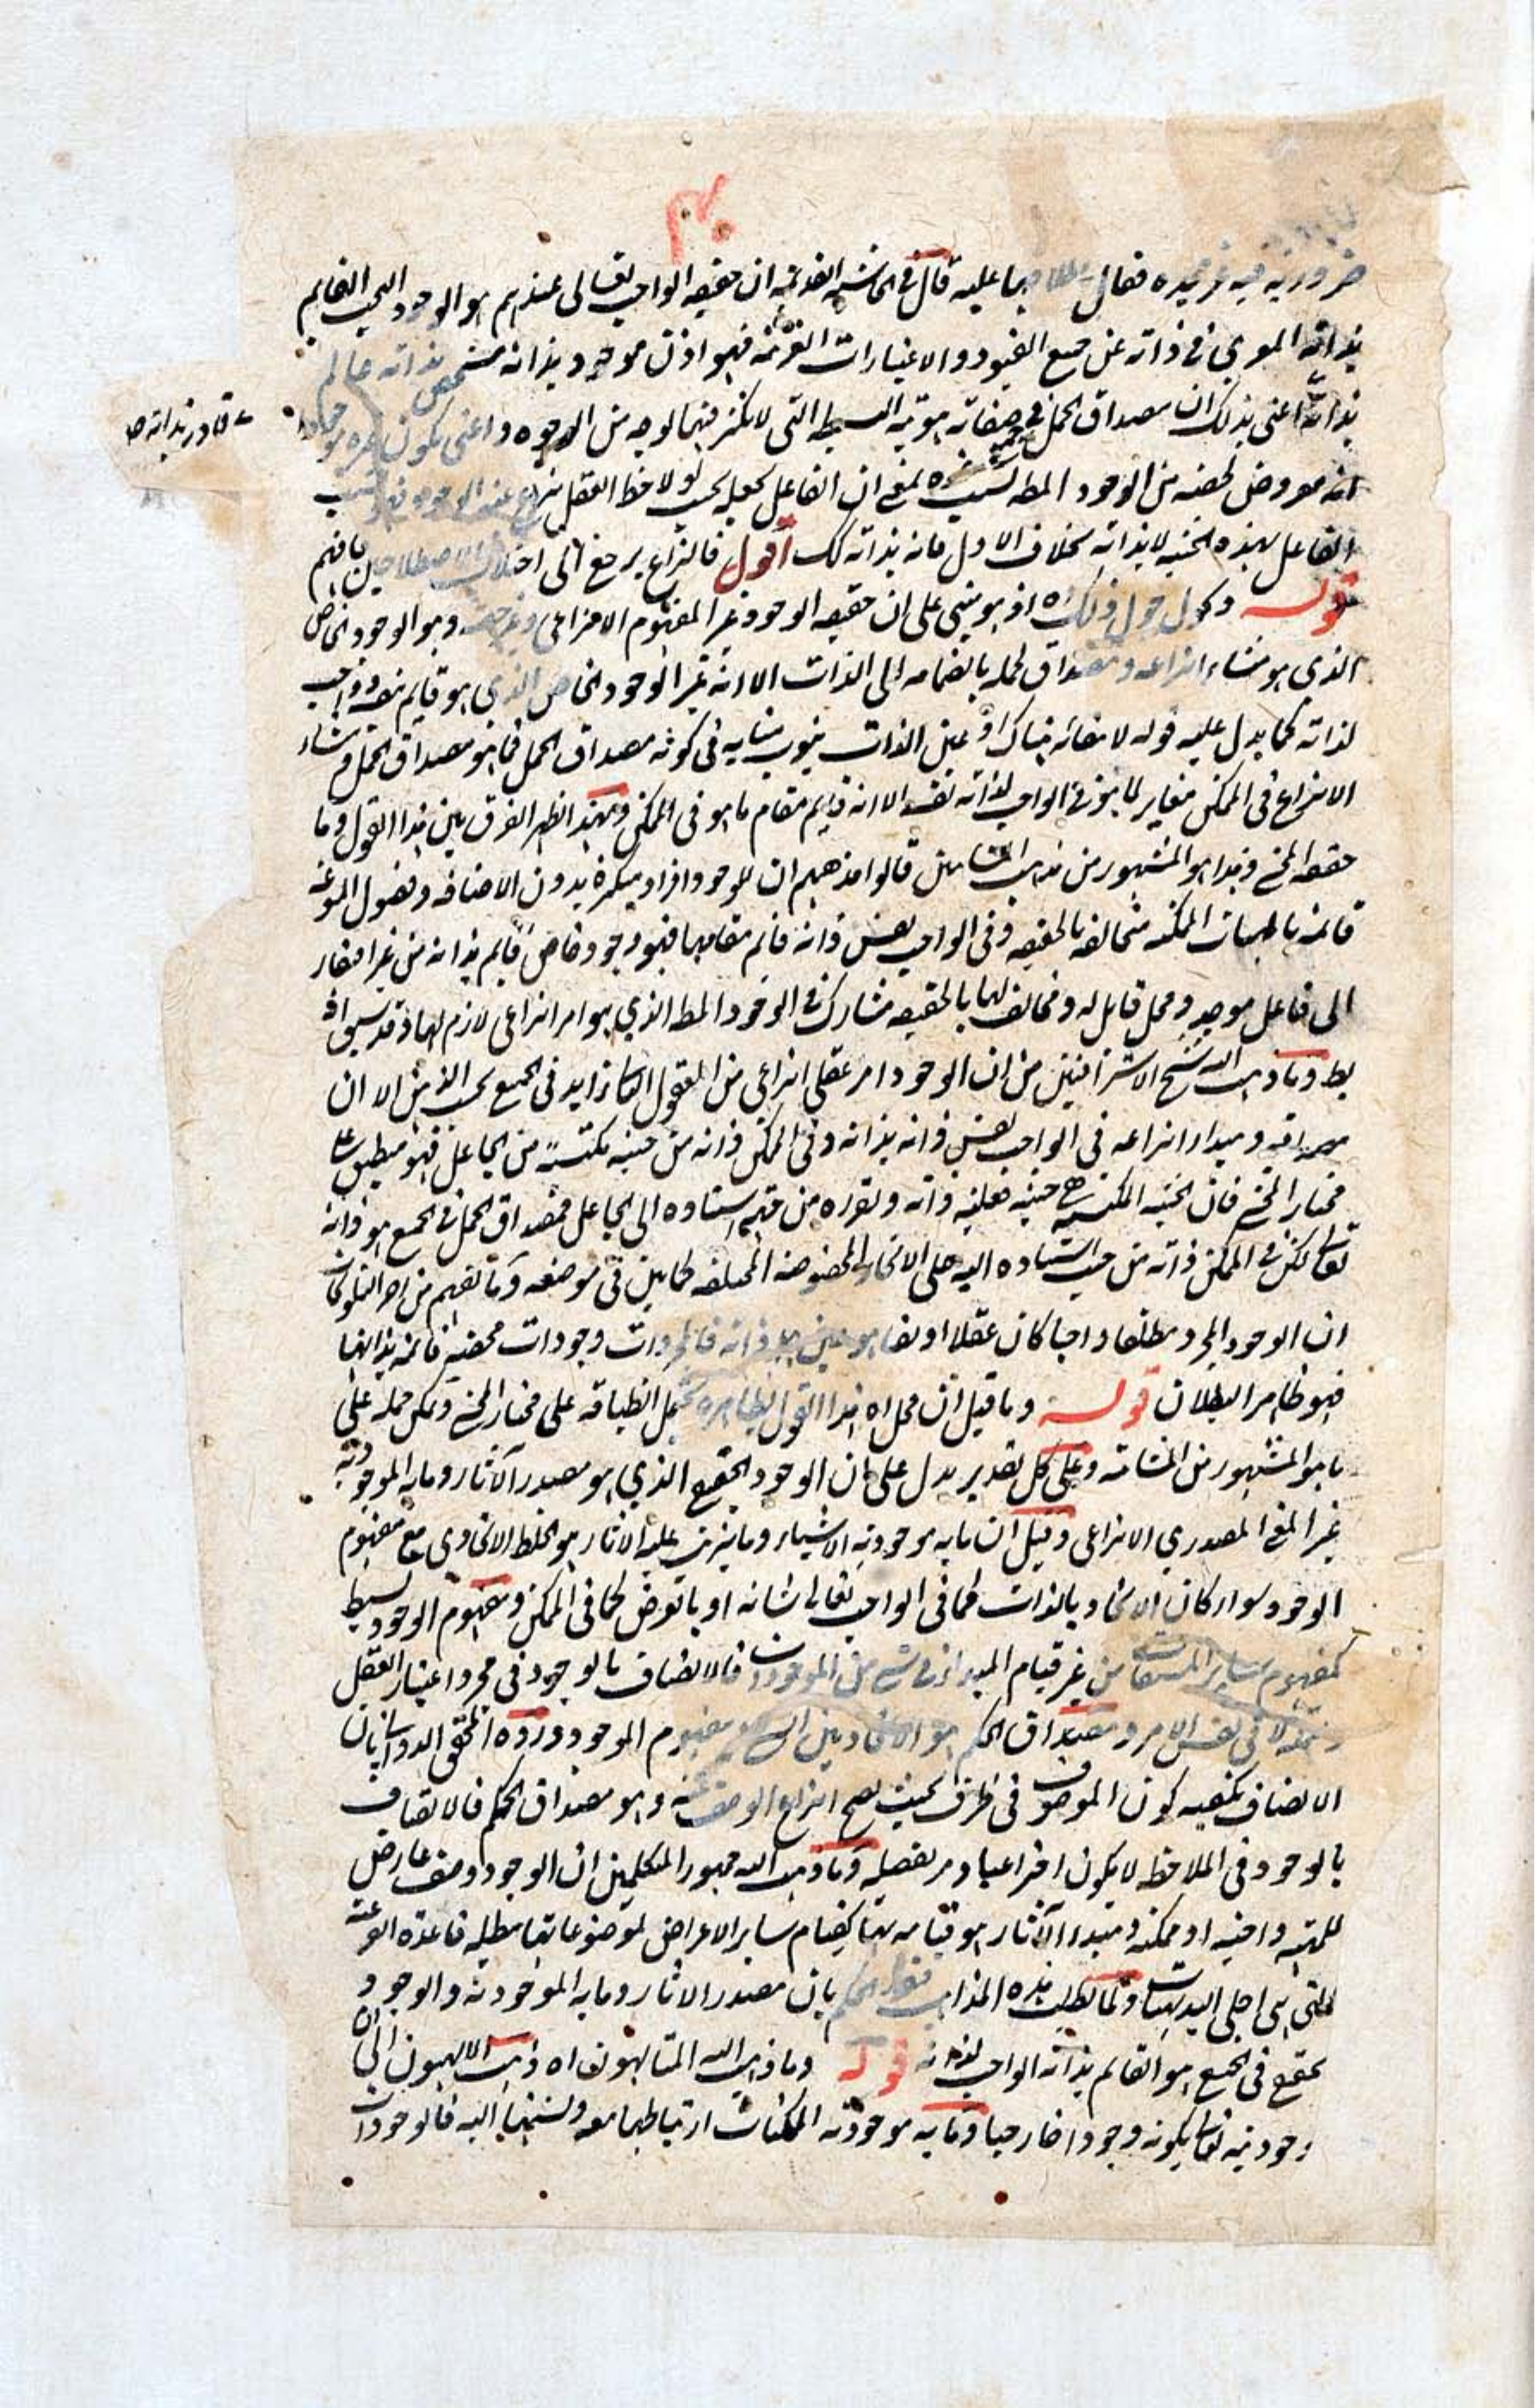 ضرورية فيه غير مفيده فقال عليه قال في الحاشية القديمة ان حقيقه الواجب تعالى عندهم هو الوجود البحت القايم
بذاته المعرى في ذاته عن جميع القيود والاعتبارات الغريبة فهو اذن موجود بذاته متشخص بذاته عالم
بذاته اعنى بذلك ان مصداق الحمل في صفاته هويته البسيطه التى لا تكثر فيها لوجه من الوجوه واعنى بكون غيره موجودا
قادر بذاته صح
انه معروض لحصه من الوجود المطه بسبب غيره بمعنى ان الفاعل يجعله بحيث لولاحظ العقل انتزع عنه الوجود فهو بسبب
الفاعل بهذه الحيثيه لا بذاته بخلاف الاول فانه بذاته كك اقول فالنزاع يرجع الى اختلاف الاصطلاحين فافهم
قوله وكحول حول ذلك اه اذ هو مبنى على ان حقيقه الوجود غير المفهوم الانتزاعى وهو الوجود الخاص
الذي هو منشاء انتزاعه ومصداق لحمله بانضمامه الى الذات الا انه غير الوجود الخاص الذي هو قايم بنفسه واجب
لذاته كما يدل عليه قوله لا مغائر هناك او عين الذات ينوب منابه في كونه مصداق الحمل فما هو مصداق الحمل ومنشاء
الانتزاع في الممكن مغاير لما هو في الواجب لذاته نفسه الا انه قايم مقام ما هو في الممكن وبهذا ظهر الفرق بين هذا القول وما
حققه المحشى وهذا هو المشهور من مذهب المشائين قالوا مذهبهم ان للوجود افراد متكثره بدون الاضافه وفصول المنوعه
قائمه بالمهيات الممكنه متخالفه بالحقيقه وفي الواجب نفس ذاته قائم مقامها فهو وجود خاص قايم بذاته من غير افتقار
الى فاعل موجد ومحل قابل له ومخالف لها بالحقيقه مشارك في الوجود المطه الذي هو امر انتزاعى لازم لها وقد سبق انه
بط وما ذهب اليه شيخ الاشراقيين من ان الوجود امر عقلى انتزاعى من المعقول الثانى زايد في الجميع بحسب الذهن الا ان
مصداقه ومبدا انتزاعه في الواجب نفس ذاته بذاته وفي الممكن ذاته من حيثيه مكتسبة من الجاعل فهو منطبق على
مختار المحشى فان الحيثيه المكتسبه هي حيثيه فعليه ذاته وتقرره من جهة استناده الى الجاعل فمصداق الحمل في الجميع هو ذاته
تعالى لكن في الممكن ذاته من حيث استناده اليه على الانحاء المخصوصه المختلفه كما بين في موضعه وما نفهم من اخر التلويحات
ان الوجود المجرد مطلقا واجبا كان عقلا او نفسا هو عين ذاته فالمجردات وجودات محضه قائمه بذاتها
فهو ظاهر البطلان قوله وما قيل ان محل اه هذا القول بظاهره يحتمل انطباقه على مختار المحشى ويمكن حمله على
ما هو المشهور من المشائيه وعلى كل تقدير يدل على ان الوجود الحقيقى الذي هو مصدر الآثار وما به الموجودية
غير المعنى المصدري الانتزاعى وقيل ان ما به موجودية الاشياء وما يترتب عليه الاثار هو الخلط الاتحادى مع مفهوم
الوجود سواء كان الاتحاد بالذات كما في الواجب تعالى شانه او بالعرض كما في الممكن ومفهوم الوجود بسيط
كمفهوم ساير المشتقات من غير قيام المبدء في شئ من الموجودات فالاتصاف بالوجود في مجرد اعتبار العقل
لا في نفس الامر ومصداق الحكم هو الاتحاد بين الشئ ومفهوم الموجود ورده المحقق الدواني بان
الاتصاف يكفيه كون الموصوف في ظرف بحيث يصح انتزاع الوصف عنه وهو مصداق الحكم فالاتصاف
بالوجود في الملاحظه لا يكون اختراعيا ومر تفصيله وما ذهب اليه جمهور المتكلمين ان الوجود وصف عارض
للمهية واجبه او ممكنه ومبدء الآثار هو قيامه بها كقيام ساير الاعراض لموضوعاتها مبطله قاعدة الفرعيه
التى هى اجلى البديهيات ولما بطلت هذه المذاهب الحكم بان مصدر الاثار وما به الموجودية والوجود
الحقيقى في الجميع هو القايم بذاته الواجب لذاته قوله وما ذهب اليه المتالهون اه ذهب الالهيون الى ان
وجوديته تعالى بكونه وجودا خارجيا وما به موجودية الممكنات ارتباطها معه ونسبتها اليه فالوجودات